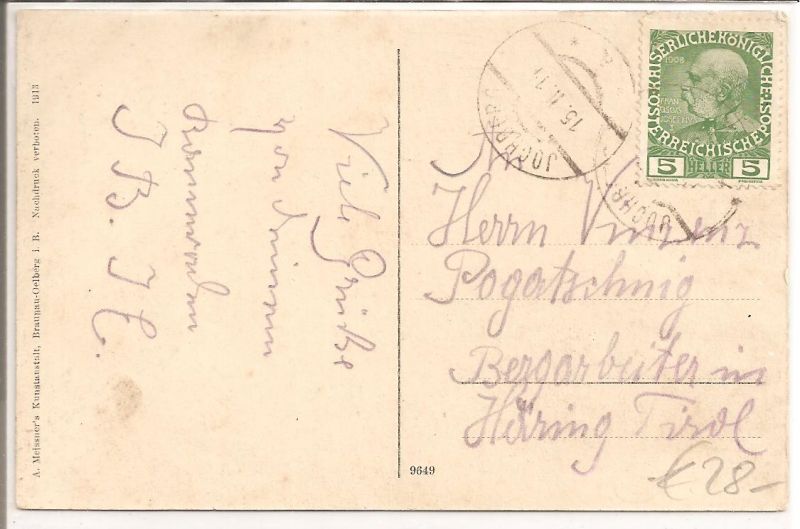 A. Meissner's Kunstanstalt, Braunau-Oelberg i. B. Nachdruck verboten. 1913
Viele Grüße
von deinem
Kammeraden
J B. J C.
15. II. 1
JOCHB
JOCHB
KAISERLICHEKÖNIGLICHE
ÖSTERREICHISCHEPOST
1908
5 HELLER 5
An
Herrn Vinzenz
Pogatschnig
Bergarbeiter in
Häring Tirol
€ 28-
9649